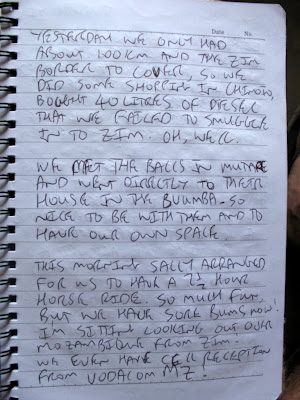 Date No.
YESTERDAY WE ONLY HAD
ABOUT 100KM AND THE ZIM
BORDER TO COVER, SO WE
DID SOME SHOPPING IN CHIMOIO,
BOUGHT 40 LITRES OF DIESEL
THAT WE FAILED TO SMUGGLE
IN TO ZIM. OH, WELL.
WE MET THE BALLS IN MUTARE
AND WENT DIRECTLY TO THEIR
HOUSE IN THE BVUMBA. SO
NICE TO BE WITH THEM AND TO
HAVE OUR OWN SPACE.
THIS MORNING SALLY ARRANGED
FOR US TO HAVE A 2½ HOUR
HORSE RIDE. SO MUCH FUN,
BUT WE HAVE SORE BUMS NOW!
I'M SITTING LOOKING OUT OVER
MOZAMBIQUE FROM ZIM.
WE EVEN HAVE CELL RECEPTION
FROM VODACOM MZ!